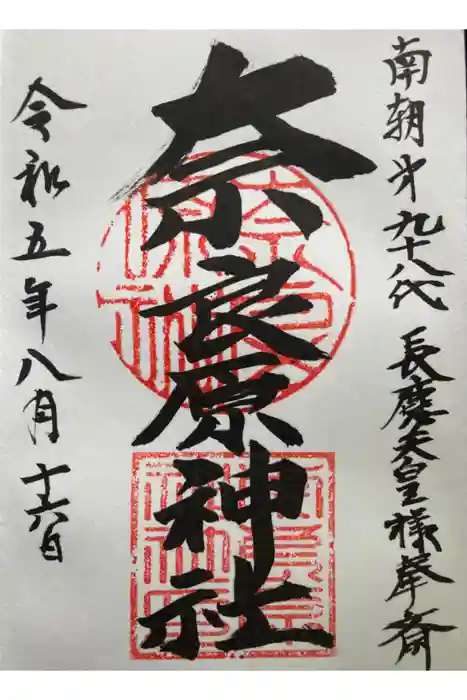 南朝第九十八代 長慶天皇様奉斎
奈良原神社
令和五年八月十六日